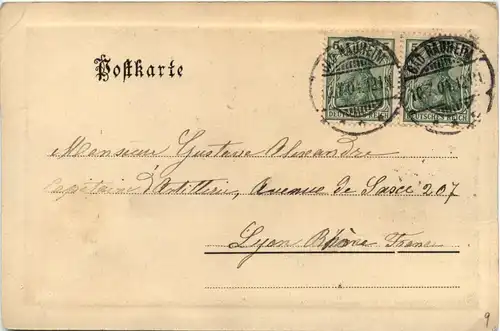 5 5
BAD NAUHEIM BAD NAUHEIM
DEUTSCHES REICH
Postkarte
Monsieur Gustave Alexandre
Capitaine d'Artillerie, Avenue de Saxe 207
Lyon Rhône France
9